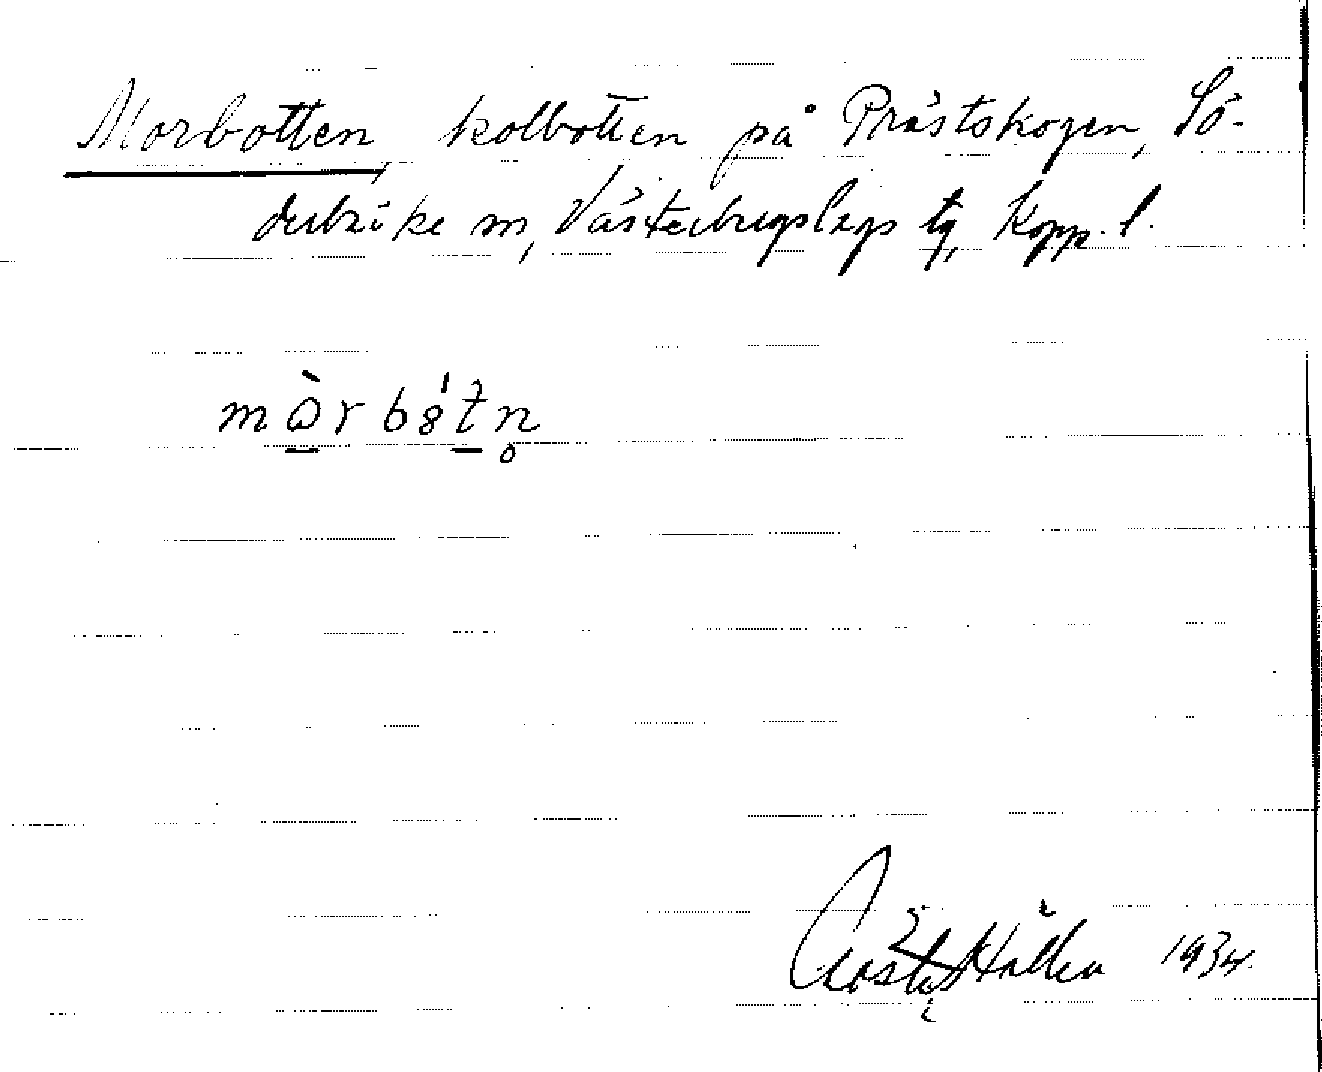 Morbotten, kolbotten på Prästskogen, Sö-
derbärke sn, Västerbergslags tg, Kopp. l.
mòrbótn̥
Gösta Hallen 1934.